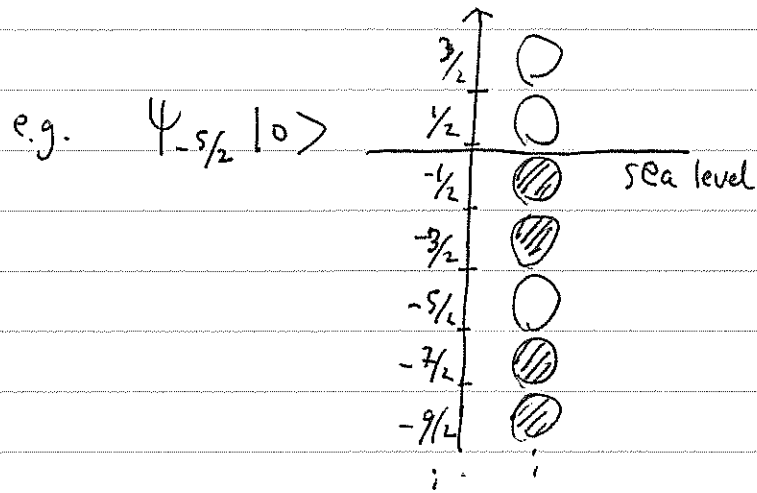 3/2
e.g. ψ_{-5/2} |0>
1/2
-1/2 sea level
-3/2
-5/2
-7/2
-9/2